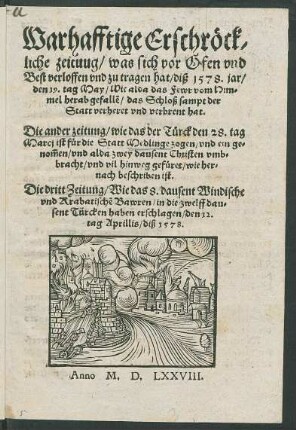 Warhafftige Erschröck-
liche zeitung / was sich vor Ofen vnd
Pest verloffen vnd zu tragen hat / diß 1578. jar /
den 19. tag May / Wie alda das Fewr vom Him-
mel herab gefallē / das Schloß sampt der
Statt verheret vnd verbrent hat.
Die ander zeitung / wie das der Türck den 28. tag
Marcj ist für die Statt Medlinge zogen, vnd ein ge-
nom̄en / vnd alda zwey dausent Christen vmb-
bracht / vnd vil hinweg gefüret / wie her-
nach beschriben ist.
Die dritt Zeitung / Wie das 8. dausent Windische
vnd Krabatische Bawren / in die zwelff dau-
sent Türcken haben erschlagen / den 12.
tag Aprillis / diß 1578.
Anno M. D. LXXVIII.